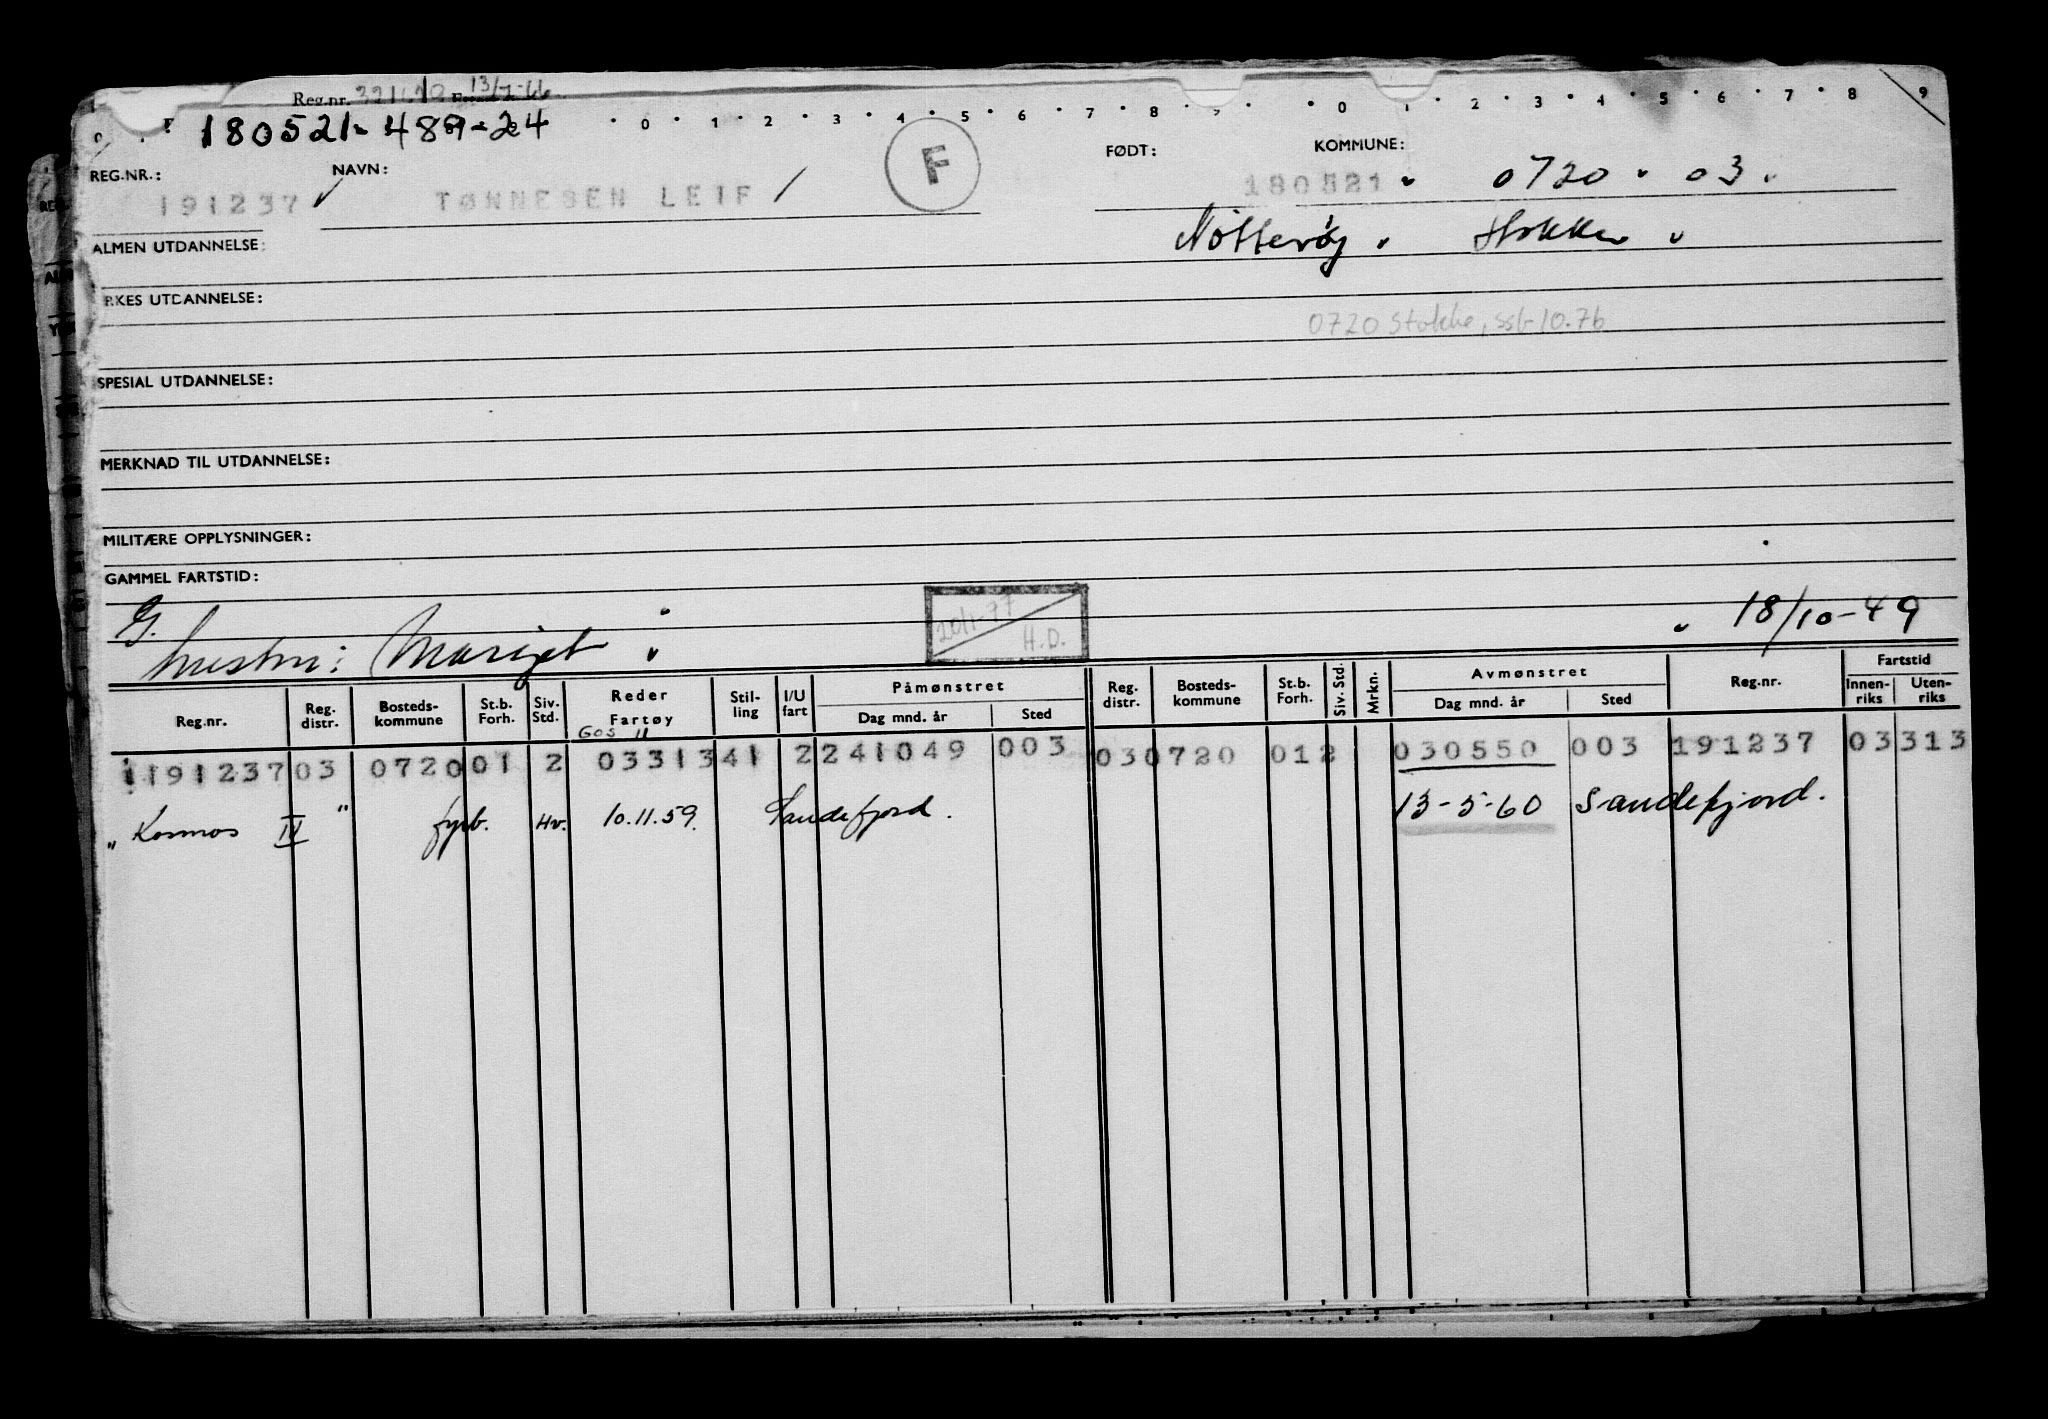 Reg.nr. 13/7-66
180521-489-24
0 1 2 3 4 5 6 7 8 9 0 1 2 3 4 5 6 7 8 9
REG.NR.: NAVN: FØDT: KOMMUNE:
191237 TØNNESEN LEIF / F 180521 0720 03
Nøtterøy Stokke
ALMEN UTDANNELSE:
RKES UTDANNELSE:
0720 Stokke, ssb-10.76
SPESIAL UTDANNELSE:
MERKNAD TIL UTDANNELSE:
MILITÆRE OPPLYSNINGER:
GAMMEL FARTSTID:
G. 20/1-77 H.D. 18/10-49
hustru: Margit
Reg.nr. Reg. distr. Bosteds-kommune St.b. Forh. Siv. Std. Reder Fartøy Stil-ling I/U fart Påmønstret Dag mnd. år Sted Reg. distr. Bosteds-kommune St.b. Forh. Siv. Std. Mrkn. Avmønstret Dag mnd. år Sted Reg.nr. Fartstid Innen-riks Uten-riks
Gos 11
1191237 03 0720 01 2 03313 41 2 241049 003 03 0720 01 2 030550 003 191237 03 313
"Kosmos IV" fyrb. Hv. 10.11.59. Sandefjord. 13-5-60 Sandefjord.